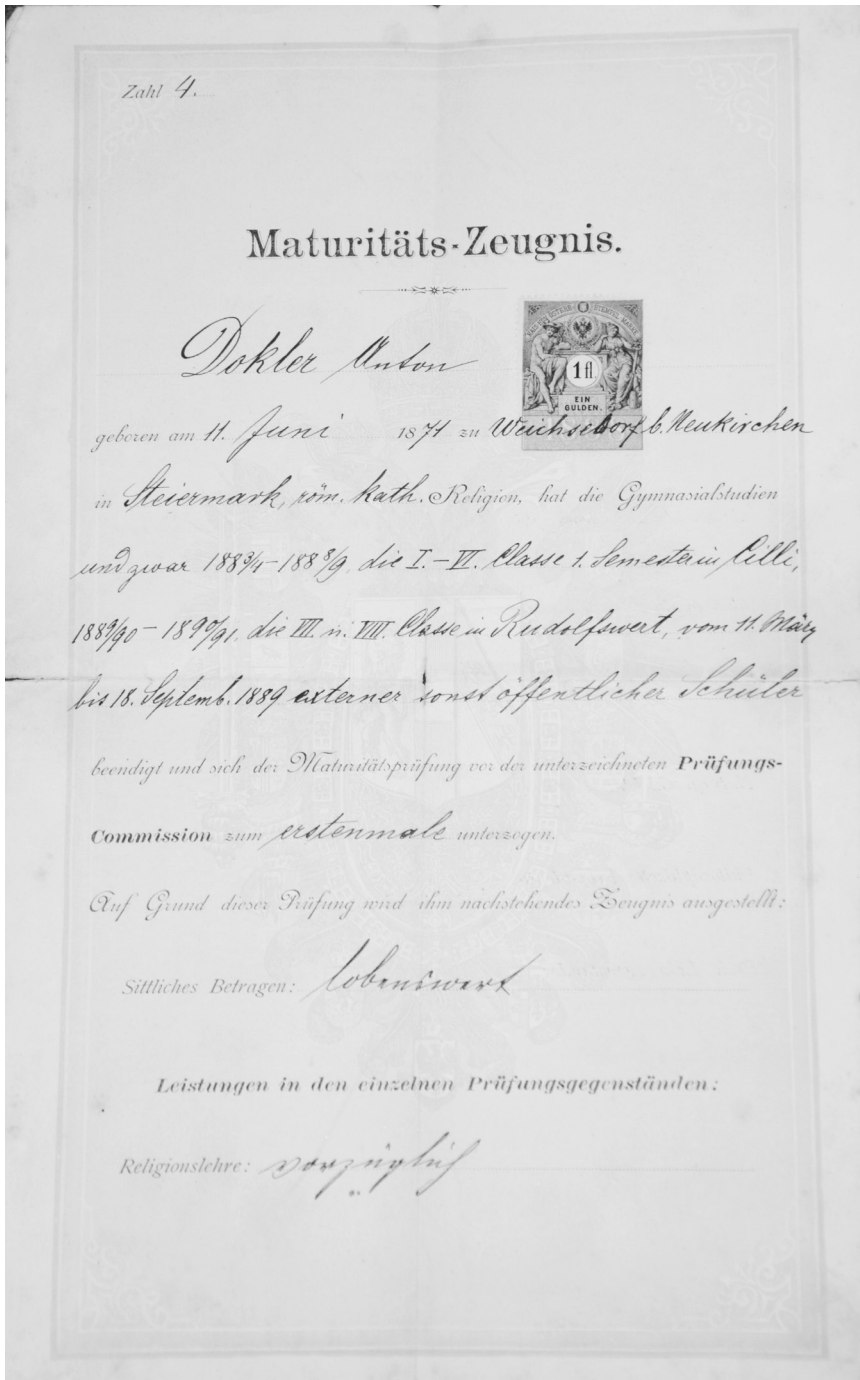 Zahl 4.
Maturitäts-Zeugnis.
Dokler Anton
1 fl
EIN
GULDEN.
geboren am 11. Juni 1871 zu Weichseldorf b. Neukirchen
in Steiermark, röm. kath. Religion, hat die Gymnasialstudien
und zwar 1883/4 - 1888/9, die I. - VI. Classe 1. Semester in Cilli,
1889/90 - 1890/91, die VII. u. VIII. Classe in Rudolfswert, vom 11. März
bis 18. Septemb. 1889 externer sonst öffentlicher Schüler
beendigt und sich der Maturitätsprüfung vor der unterzeichneten Prüfungs-
Commission zum erstenmale unterzogen.
Auf Grund dieser Prüfung wird ihm nachstehendes Zeugnis ausgestellt:
Sittliches Betragen: lobenswert
Leistungen in den einzelnen Prüfungsgegenständen:
Religionslehre: vorzüglich